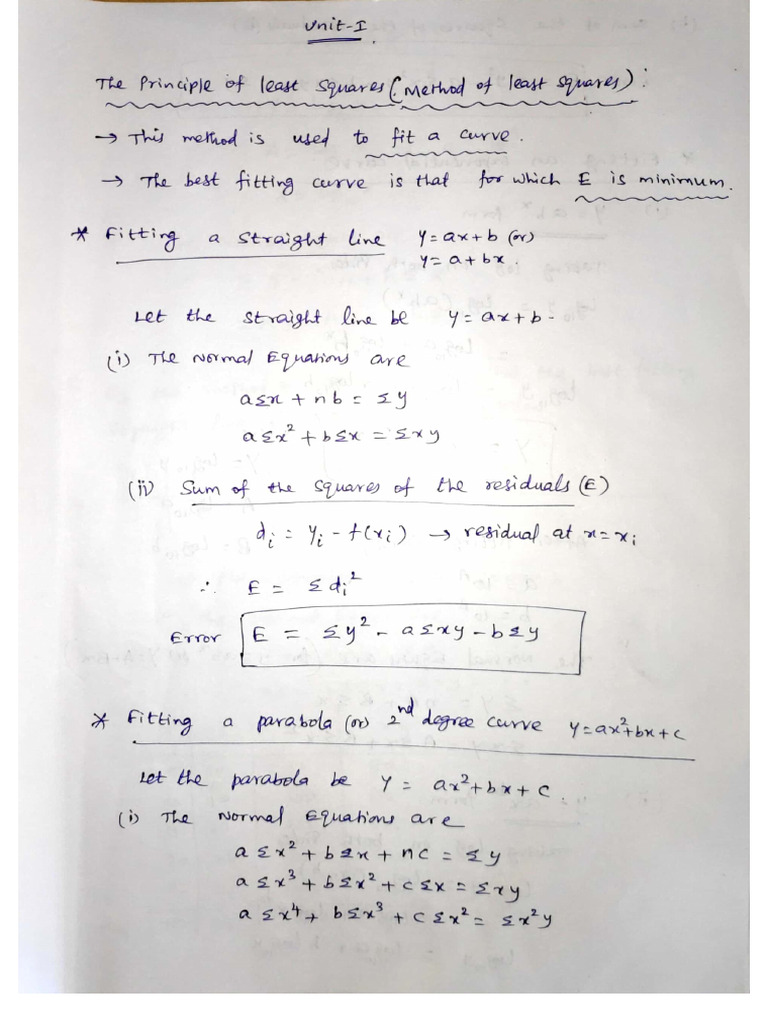 Unit-I.
The Principle of least squares (Method of least squares) :
→ This method is used to fit a curve.
→ The best fitting curve is that for which E is minimum.
* Fitting a straight line y=ax+b (or)
y=a+bx.
Let the straight line be y=ax+b.
(i) The Normal Equations are
aΣx + nb = Σy
aΣx² + bΣx = Σxy
(ii) Sum of the squares of the residuals (E)
dᵢ = yᵢ - f(xᵢ) → residual at x=xᵢ
∴ E = Σdᵢ²
Error E = Σy² - aΣxy - bΣy
* Fitting a parabola (or) 2nd degree curve y=ax²+bx+c
Let the parabola be y = ax²+bx+c.
(i) The Normal Equations are
aΣx² + bΣx + nc = Σy
aΣx³ + bΣx² + cΣx = Σxy
aΣx⁴ + bΣx³ + cΣx² = Σx²y